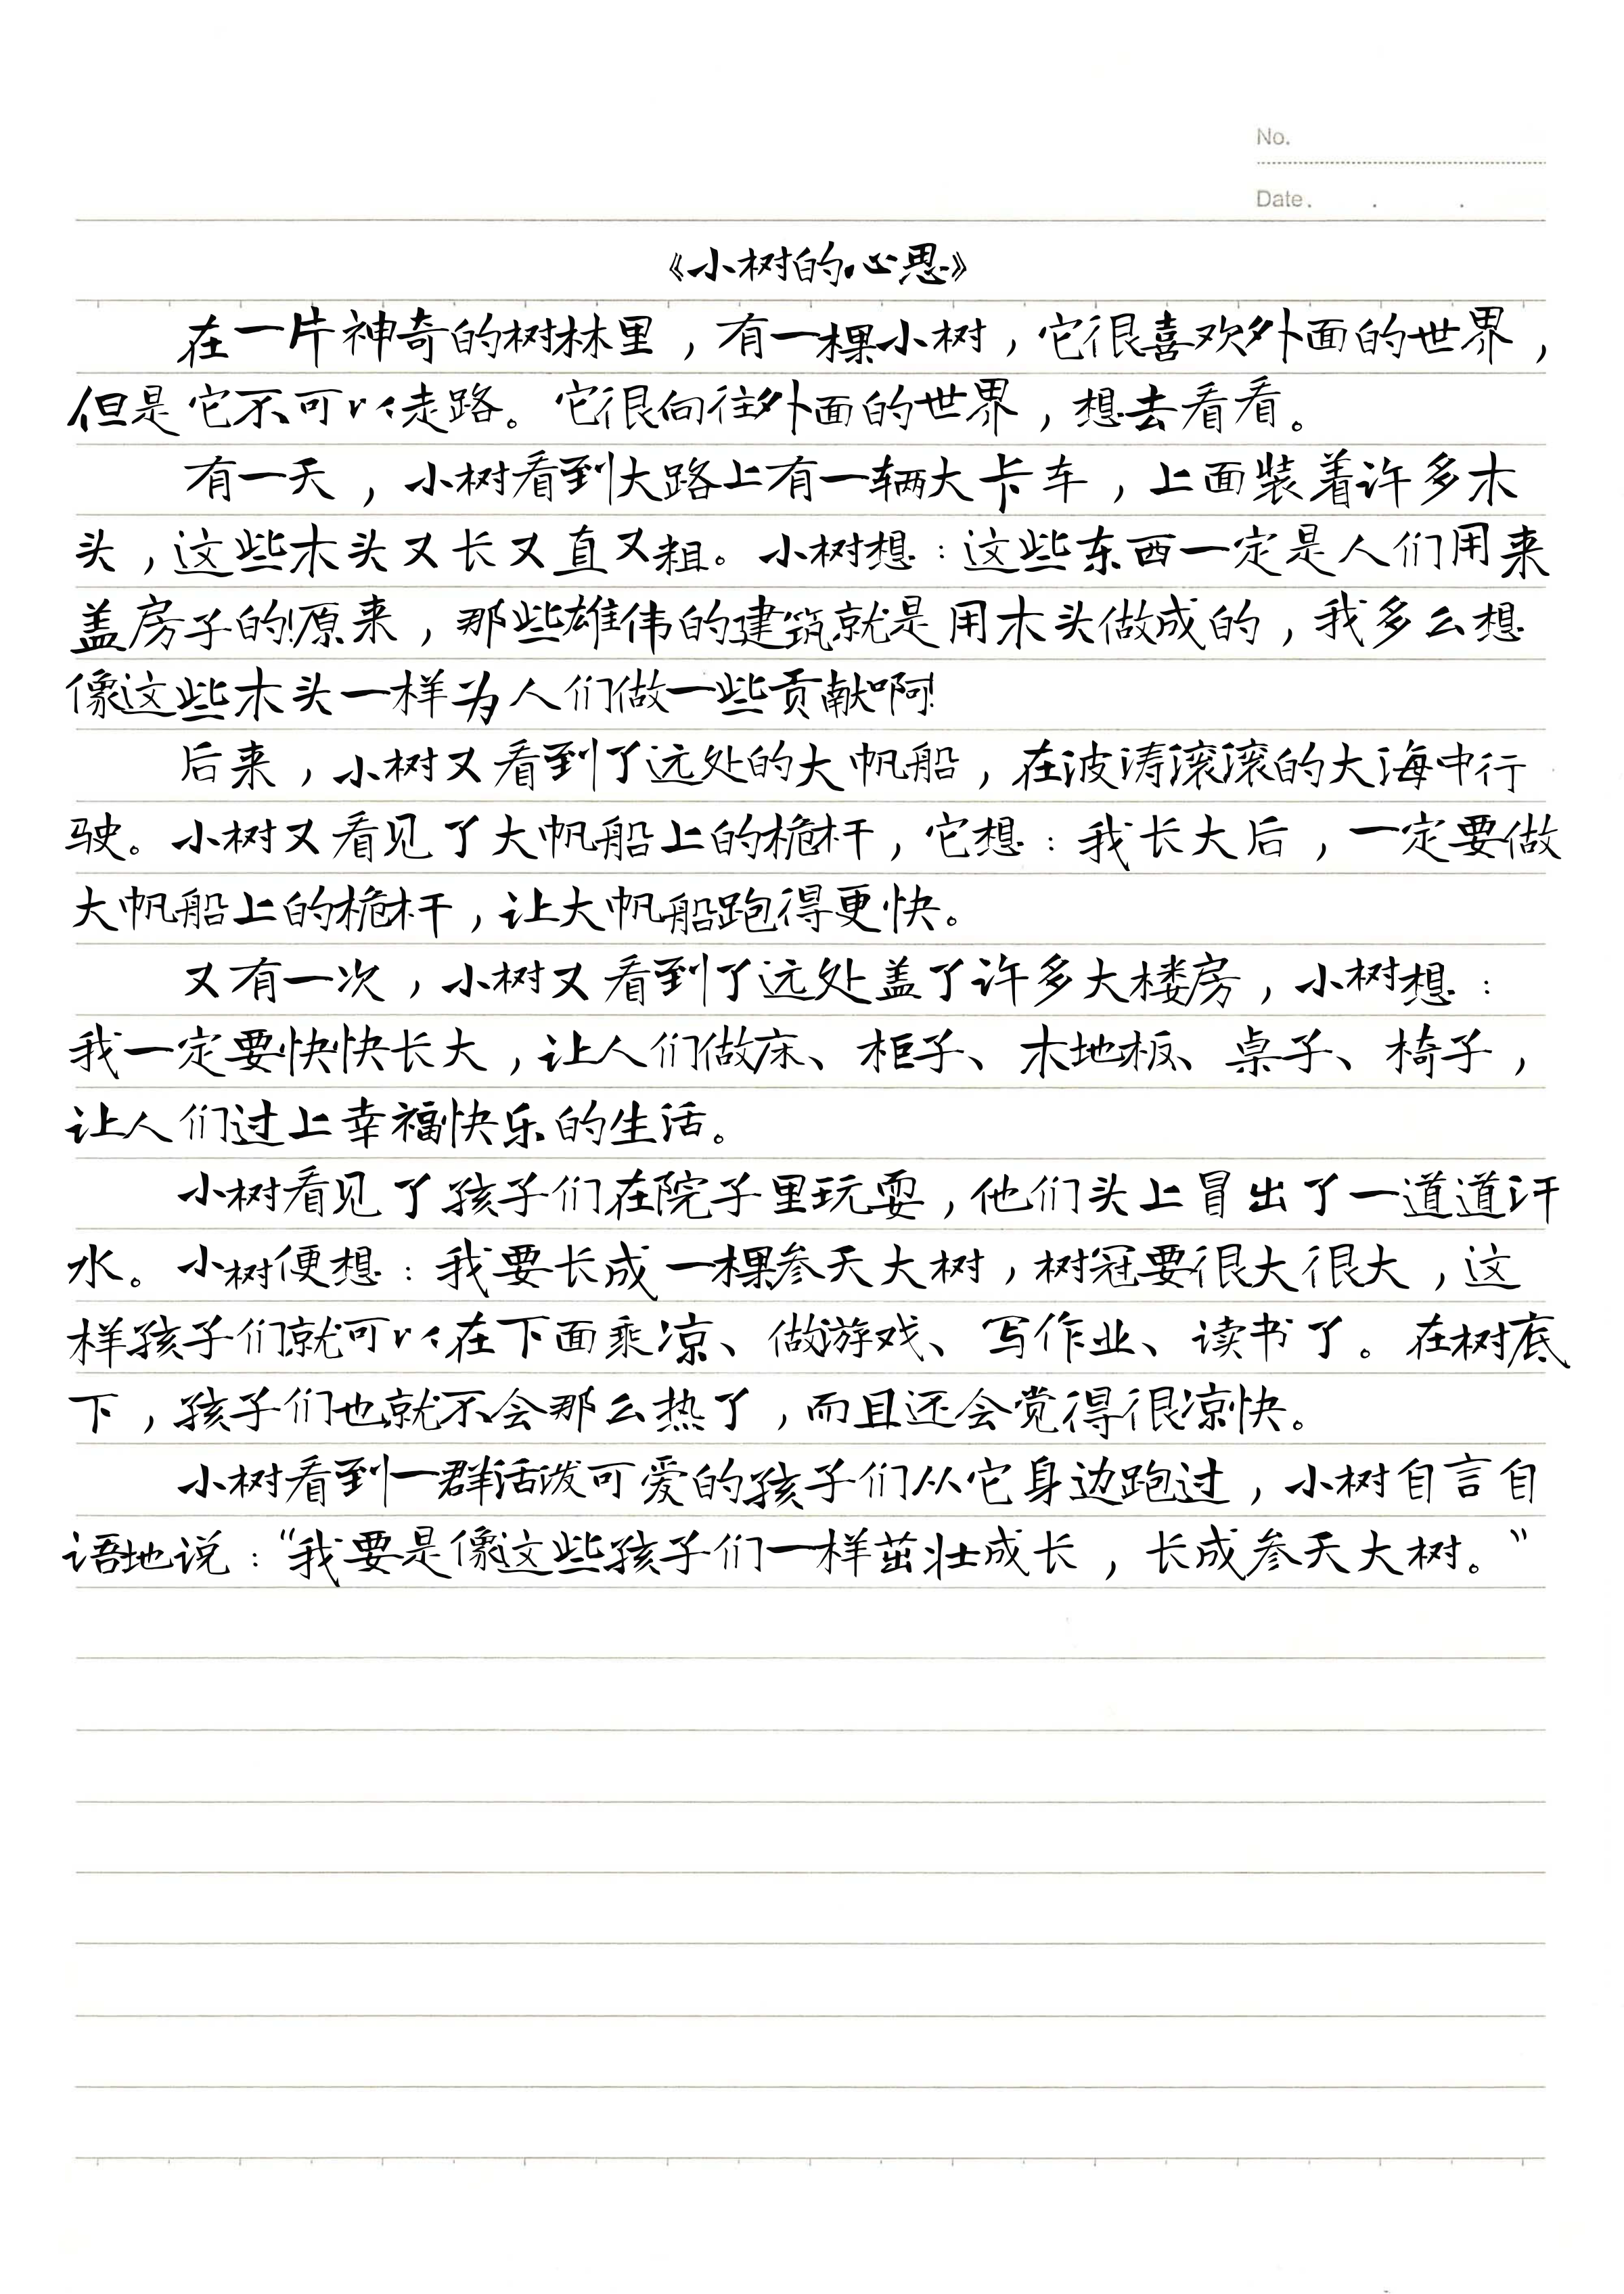 No.
Date.
《小树的心思》
在一片神奇的树林里，有一棵小树，它很喜欢外面的世界，
但是它不可以走路。它很向往外面的世界，想去看看。
有一天，小树看到大路上有一辆大卡车，上面装着许多木
头，这些木头又长又直又粗。小树想：这些东西一定是人们用来
盖房子的!原来，那些雄伟的建筑就是用木头做成的，我多么想
像这些木头一样为人们做一些贡献啊!
后来，小树又看到了远处的大帆船，在波涛滚滚的大海中行
驶。小树又看见了大帆船上的桅杆，它想：我长大后，一定要做
大帆船上的桅杆，让大帆船跑得更快。
又有一次，小树又看到了远处盖了许多大楼房，小树想：
我一定要快快长大，让人们做床、柜子、木地板、桌子、椅子，
让人们过上幸福快乐的生活。
小树看见了孩子们在院子里玩耍，他们头上冒出了一道道汗
水。小树便想：我要长成一棵参天大树，树冠要很大很大，这
样孩子们就可以在下面乘凉、做游戏、写作业、读书了。在树底
下，孩子们也就不会那么热了，而且还会觉得很凉快。
小树看到一群活泼可爱的孩子们从它身边跑过，小树自言自
语地说：“我要是像这些孩子们一样茁壮成长，长成参天大树。”